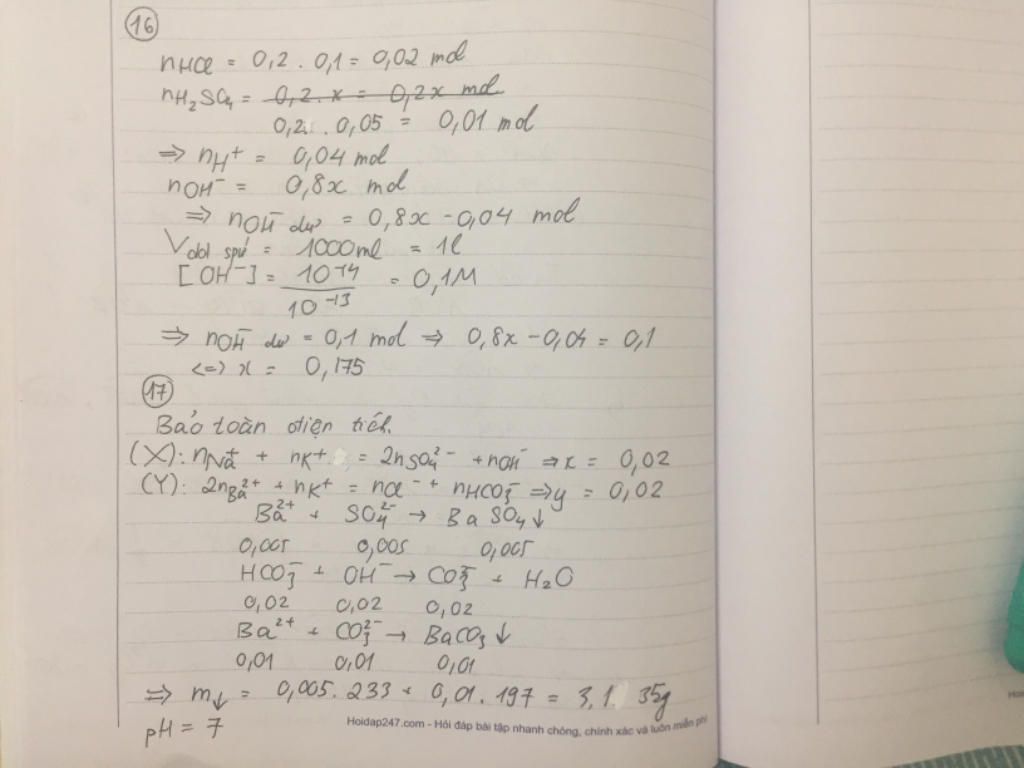 16
nHCl = 0,2 . 0,1 = 0,02 mol
nH2SO4 = 0,2 . x = 0,2x mol
0,2 . 0,05 = 0,01 mol
=> nH+ = 0,04 mol
nOH- = 0,8x mol
=> nOH- dư = 0,8x - 0,04 mol
Vdd spứ = 1000ml = 1l
[OH-] = 10^-14 / 10^-13 = 0,1M
=> nOH- dư = 0,1 mol => 0,8x - 0,04 = 0,1
<=> x = 0,175
17
Bảo toàn điện tích.
(X): nNa+ + nK+ = 2nSO4^2- + nOH- => x = 0,02
(Y): 2nBa^2+ + nK+ = nCl- + nHCO3- => y = 0,02
Ba^2+ + SO4^2- → BaSO4↓
0,005 0,005 0,005
HCO3- + OH- → CO3^2- + H2O
0,02 0,02 0,02
Ba^2+ + CO3^2- → BaCO3↓
0,01 0,01 0,01
=> m↓ = 0,005. 233 + 0,01. 197 = 3,1 35g
pH = 7
Hoidap247.com - Hỏi đáp bài tập nhanh chóng, chính xác và luôn miễn phí